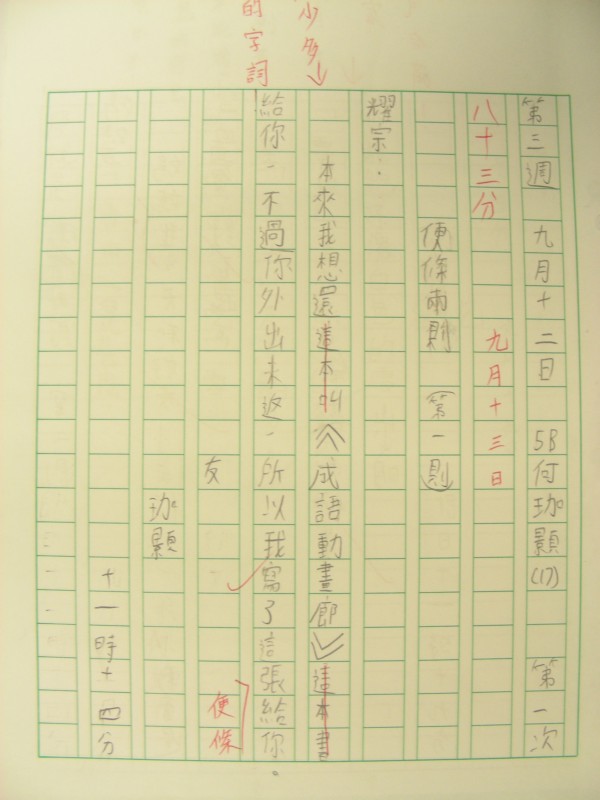 第三週 九月十二日 5B何珈顥(17) 第一次
八十三分 九月十三日
便條兩則 (第一則)
耀宗：
少多
本來我想還這本叫︽成語動畫廊︾這本書
的字詞
給你，不過你外出未返，所以我寫了這張給你。
便條
友
珈顥
十一時十四分